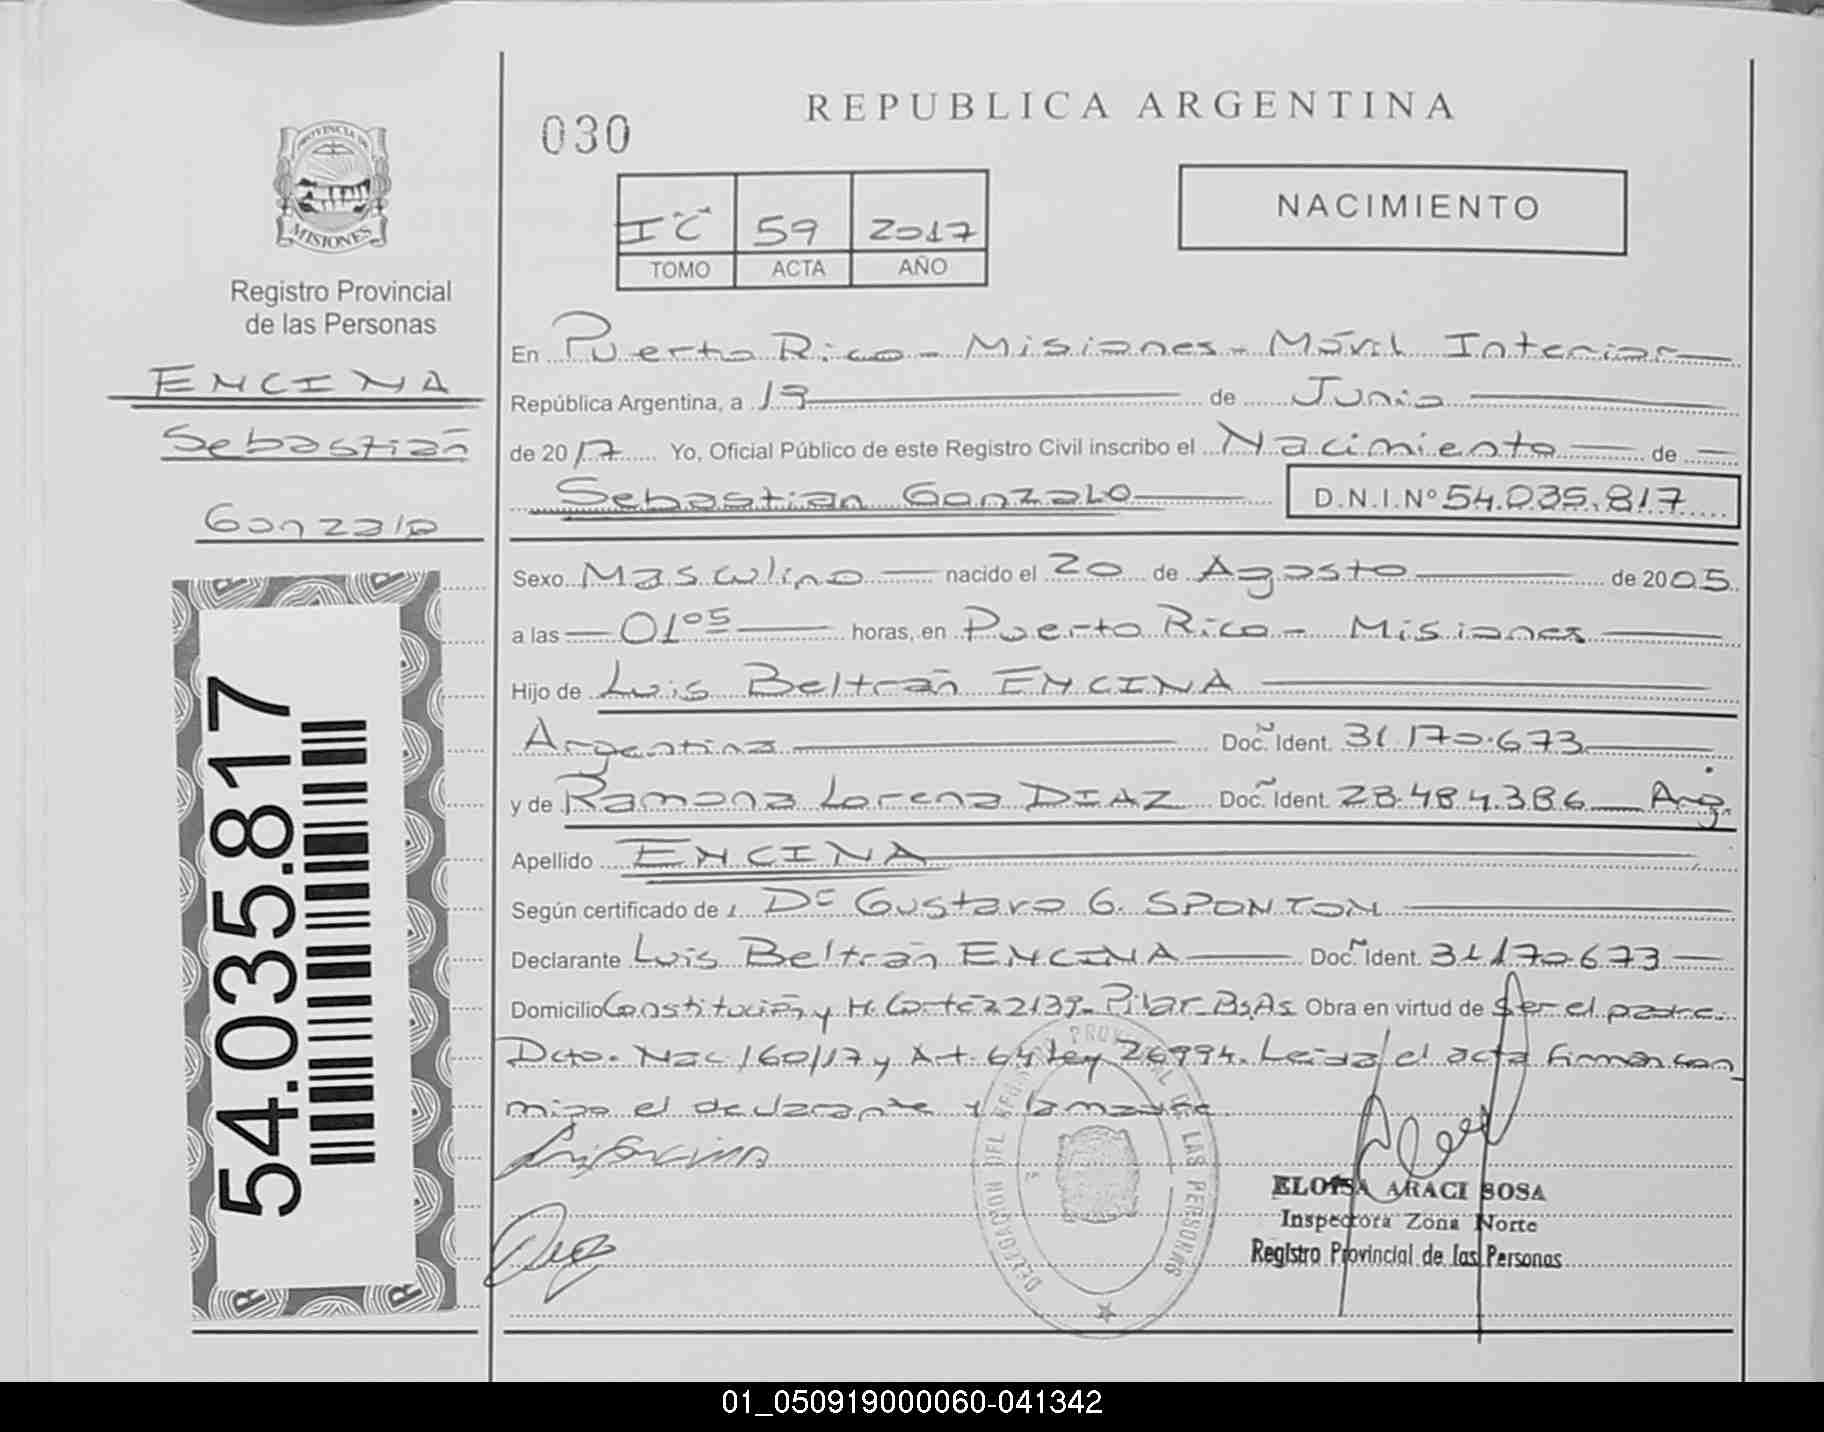 REPUBLICA ARGENTINA
030
NACIMIENTO
PROVINCIA DE
MISIONES
59 2017
TOMO ACTA AÑO
Registro Provincial
de las Personas
ENCINA
Sebastián
Gonzalo
54.035.817
En Puerto Rico - Misiones - Móvil Interior
República Argentina, a 19 de Junio
de 2017 Yo, Oficial Público de este Registro Civil inscribo el Nacimiento de
Sebastian Gonzalo D.N.I.Nº 54.035.817
Sexo Masculino nacido el 20 de Agosto de 2005
a las 01º⁵ horas, en Puerto Rico - Misiones
Hijo de Luis Beltrán ENCINA
Argentina Doc. Ident. 31.170.673
y de Ramona Lorena DIAZ Doc. Ident. 28.484.386 Arg.
Apellido ENCINA
Según certificado de Dr Gustavo G. SPONTON
Declarante Luis Beltrán ENCINA Doc. Ident. 31.170.673
Domicilio Constitución y H. Cortéz 2139 - Pilar - Bs.As Obra en virtud de ser el padre.
Dcto. Nac 160/17 y Art. 64 Ley 26994. Leida el acta firman con
migo el declarante y la madre
DELEGACION DEL REGISTRO PROVINCIAL DE LAS PERSONAS
ELOISA ARACI SOSA
Inspectora Zona Norte
Registro Provincial de las Personas
01_050919000060-041342